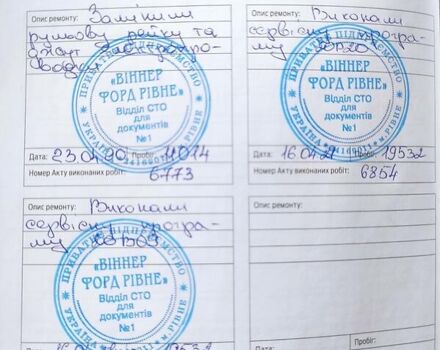 Опис ремонту: Замінили
рульову рейку та
ПРИВАТНЕ ПІДПРИЄМСТВО
«ВІННЕР
ФОРД РІВНЕ»
Відділ СТО
для
документів
№1
УКРАЇНА м.РІВНЕ
Дата: Пробіг: 11014
Номер Акту виконаних робіт: 6773
Опис ремонту: Виконали
сервісну програ-
му
ПРИВАТНЕ ПІДПРИЄМСТВО
«ВІННЕР
ФОРД РІВНЕ»
Відділ СТО
для
документів
№1
УКРАЇНА м.РІВНЕ
Дата: 16.04.21 Пробіг: 19532
Номер Акту виконаних робіт: 6854
Опис ремонту: Виконали
сервісну програ-
му
ПРИВАТНЕ ПІДПРИЄМСТВО
«ВІННЕР
ФОРД РІВНЕ»
Відділ СТО
для
документів
№1
УКРАЇНА м.РІВНЕ
Опис ремонту:
Дата: Пробіг: